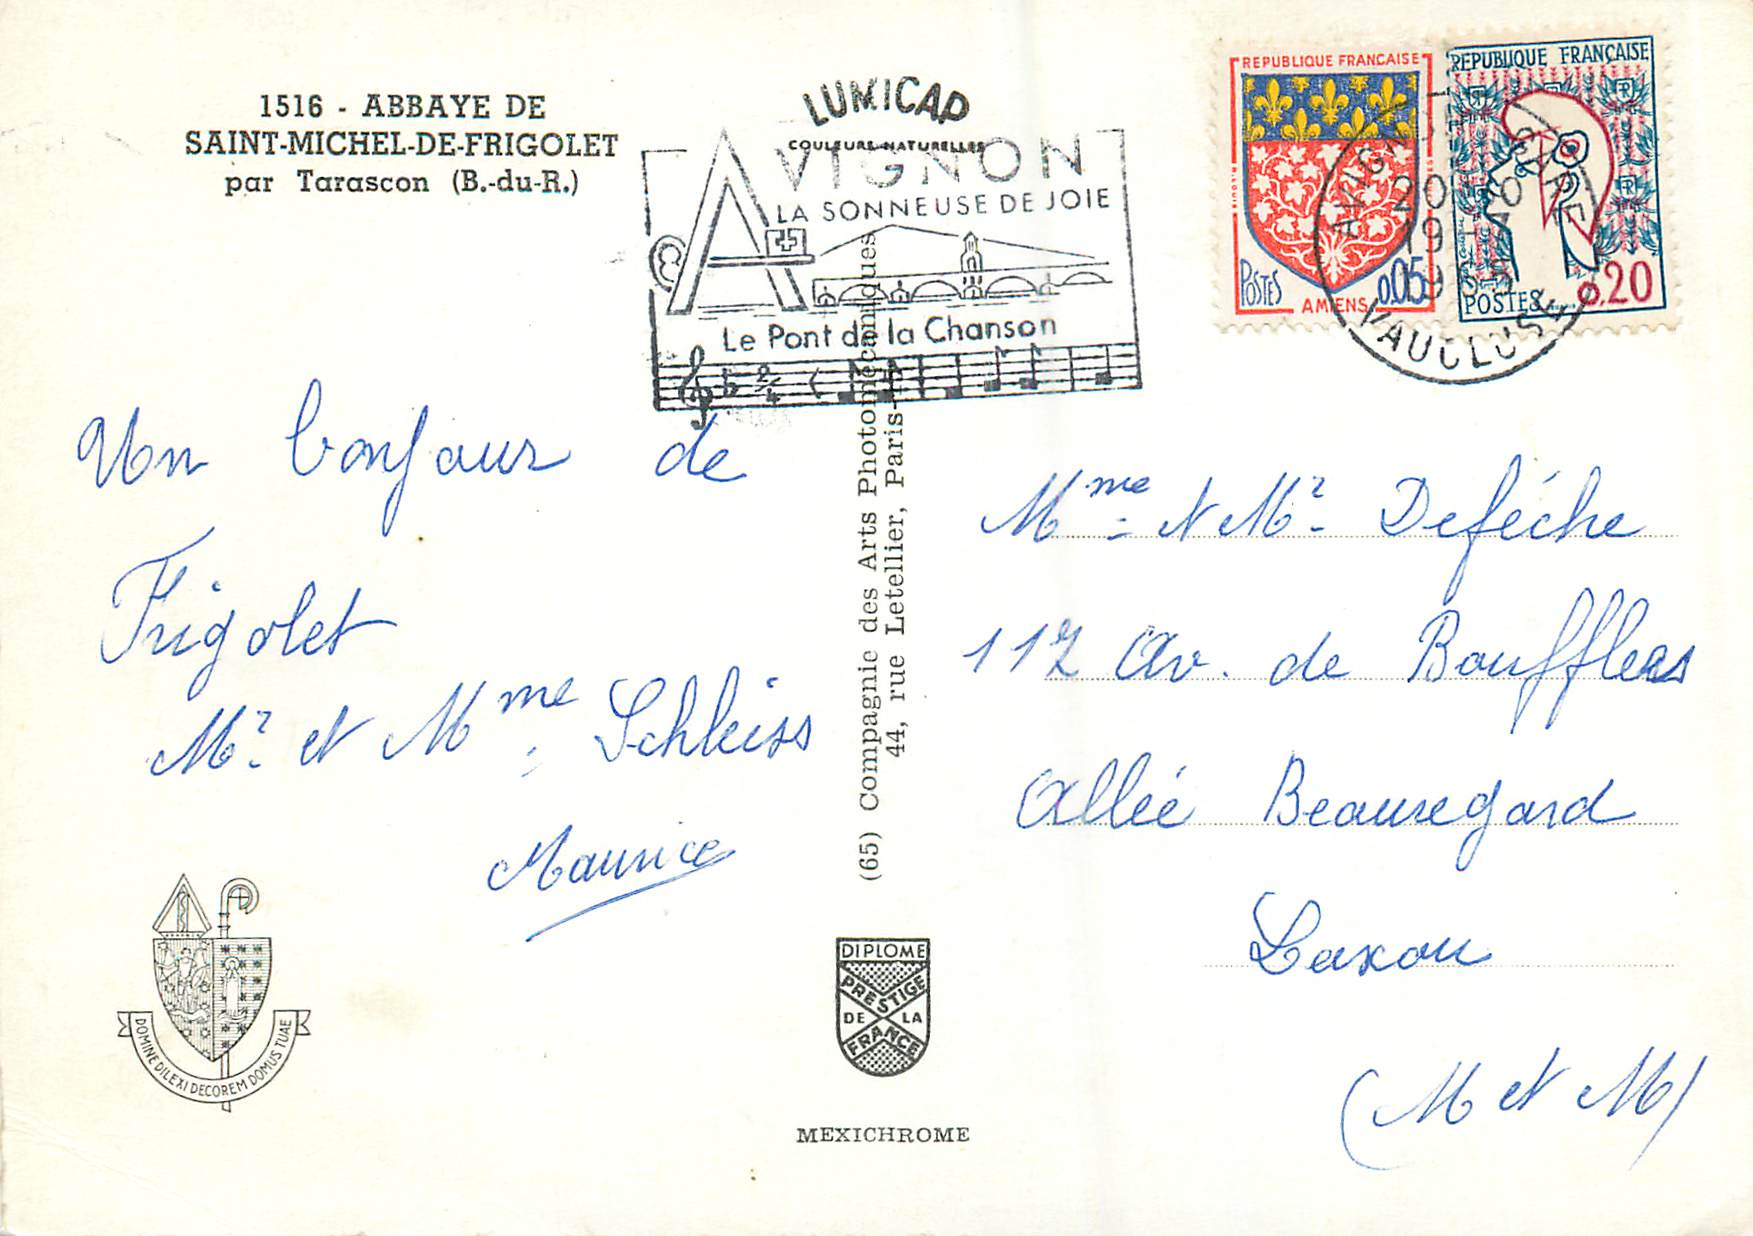 1516 - ABBAYE DE
SAINT-MICHEL-DE-FRIGOLET
par Tarascon (B.-du-R.)
LUMICAP
COULEURS NATURELLES
AVIGNON
LA SONNEUSE DE JOIE
Le Pont de la Chanson
2/4
REPUBLIQUE FRANÇAISE
POSTES
0,05
AMIENS
REPUBLIQUE FRANÇAISE
POSTES
0,20
AVIGNON GARE
20
19
VAUCLUSE
Un bonjour de
Frigolet
Mr. et Mme Schleiss
Maurice
(65) Compagnie des Arts Photomécaniques
44, rue Letellier, Paris-15
Mme et Mr. Deféche
112 Av. de Boufflers
Allée Beauregard
Laxou
(M et M)
DOMINE DILEXI DECOREM DOMUS TUAE
DIPLOME
PRESTIGE
DE LA
FRANCE
MEXICHROME